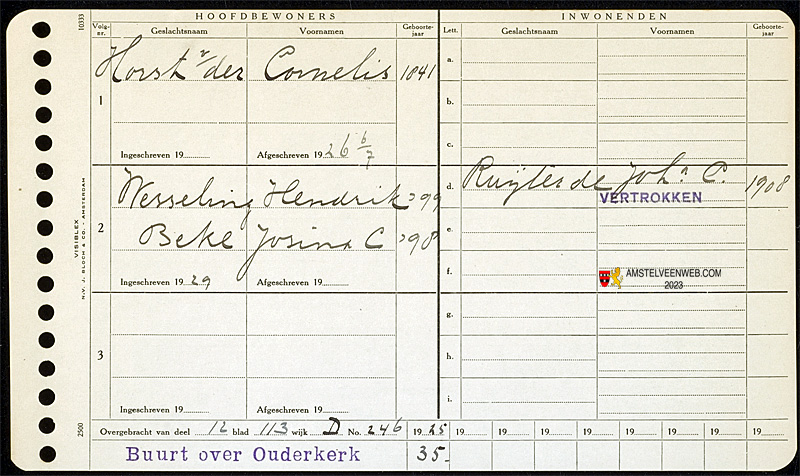 HOOFDBEWONERS INWONENDEN
Volg-nr. Geslachtsnaam Voornamen Geboorte-jaar Lett. Geslachtsnaam Voornamen Geboorte-jaar
10333
1 Horst v/der Cornelis 1841
a.
b.
c.
Ingeschreven 19 Afgeschreven 1926 6/7
2 Wesseling Hendrik '99
Beke Josina C '98
d. Ruyter de Joha C. 1908
VERTROKKEN
e.
f.
Ingeschreven 1929 Afgeschreven 19
AMSTELVEENWEB.COM
2023
VISIBLEX
N.V. J. BLOCH & CO. - AMSTERDAM
3
g.
h.
i.
Ingeschreven 19 Afgeschreven 19
2500
Overgebracht van deel 12 blad 113 wijk D No. 246 1925 19 19 19 19 19 19 19 19
Buurt over Ouderkerk 35-